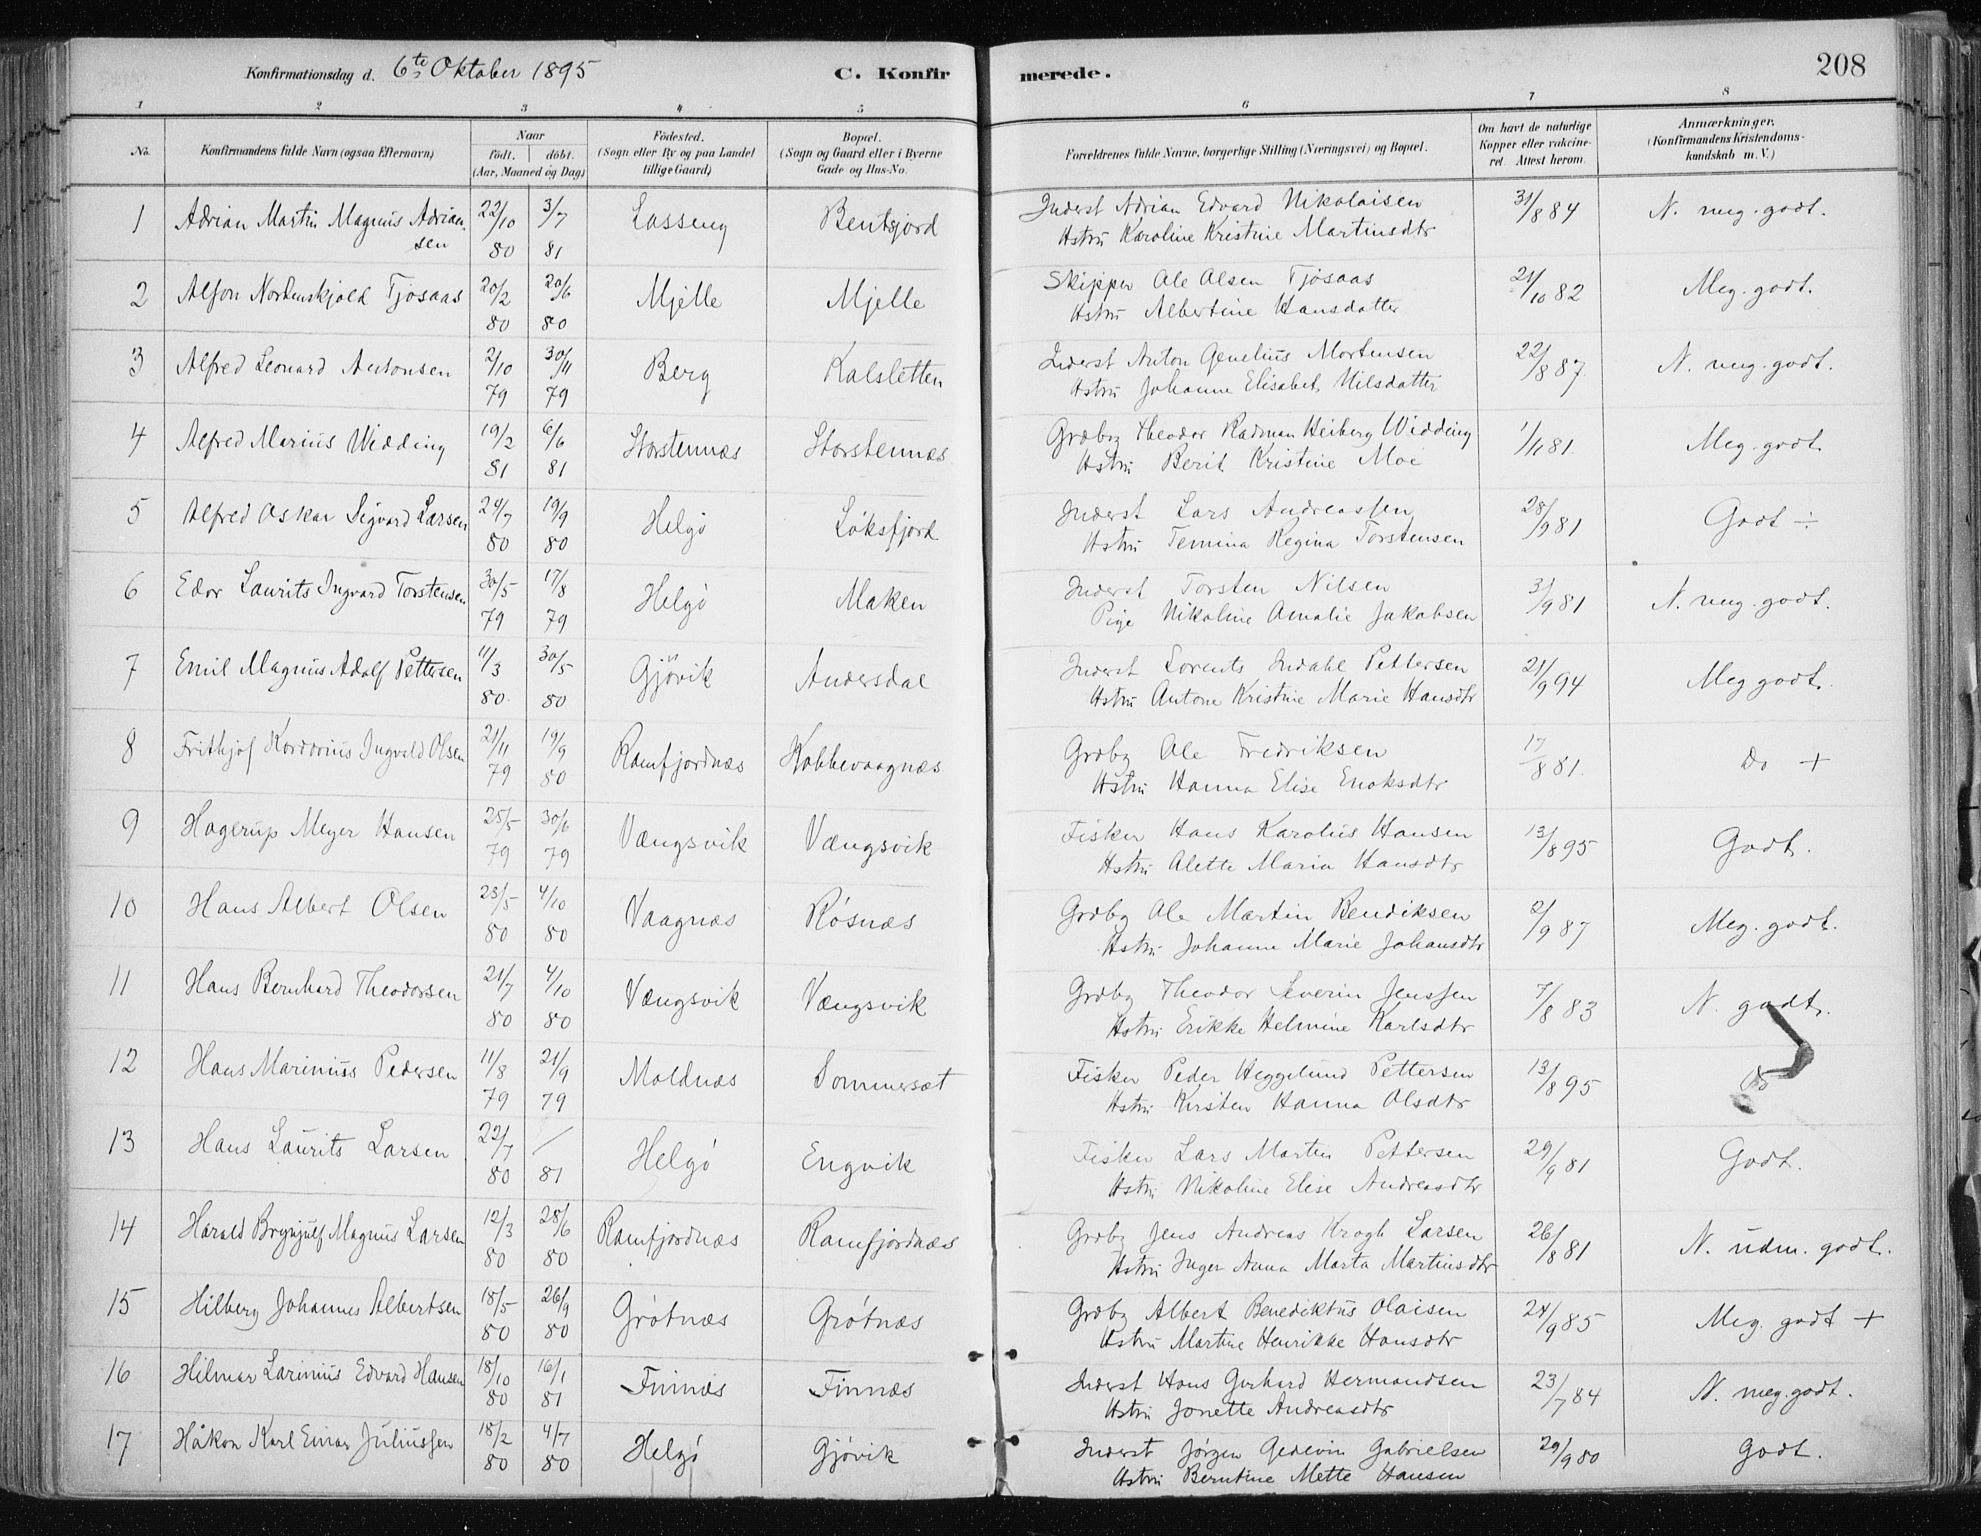 Konfirmationsdag d. 6te Oktober 1895 C. Konfirmerede. 208
1 2 3 4 5 6 7 8
No. Konfirmandens fulde Navn (ogsaa Efternavn) Naar født. døbt. (Aar, Maaned og Dag) Fødested. (Sogn eller By og paa Landet tillige Gaard) Bopæl. (Sogn og Gaard eller i Byerne Gade og Hus-No. Forældrenes fulde Navne, borgerlige Stilling (Næringsvei) og Bopæl. Om havt de naturlige Kopper eller vakcineret. Attest herom. Anmærkninger. (Konfirmandens Kristendomskundskab m. V.)
1 Adrian Martin Magnus Adriansen 22/10 80 3/7 81 Lasseng Bentsjord Inderst Adrian Edvard Nikolaisen 31/8 84 N. meg. godt.
Hstru Karoline Kristine Martinsdtr
2 Alfon Nordenskjold Tjosaas 20/2 80 20/6 80 Mjelle Mjelle Skipper Ole Olsen Tjosaas 21/10 82 Meg. godt.
Hstru Albertine Hansdatter
3 Alfred Leonard Antonsen 2/10 79 30/11 79 Berg Kalsletten Inderst Anton Genelius Mortensen 22/8 87 N. meg. godt.
Hstru Johanne Elisabet Nilsdatter
4 Alfred Marius Widding 19/2 81 6/6 81 Storstennæs Storstennæs Grdbg Theodor Radman Heiberg Widding 1/11 81. Meg. godt.
Hstru Berit Kristine Moe
5 Alfred Oskar Sigvard Larsen 24/7 80 19/9 80 Helgø Løksfjord Inderst Lars Andreassen 28/9 81 Godt ÷
Hstru Temina Regina Torstensen
6 Edor Laurits Ingvard Torstensen 30/5 79 17/8 79 Helgø Maken Inderst Torsten Nilsen 3/9 81 N. meg. godt.
Pige Nikoline Amalie Jakobsen
7 Emil Magnus Adolf Pettersen 11/3 80. 30/5 80 Gjøvik Andersdal Inderst Lorents Indahl Pettersen 21/9 94 Meg godt.
Hstru Antone Kristine Marie Hansdtr
8 Frithjof Kordorius Ingvald Olsen 21/11 79 19/9 80 Ramfjordnæs Kobbevaagnæs Grdbg Ole Fredriksen 17/8 81. Do +
Hstru Hanna Elise Enoksdtr
9 Hagerup Meyer Hansen 25/5 79 30/6 79 Vængsvik Vængsvik Fisker Hans Karolius Hansen 13/8 95 Godt.
Hstru Alette Maria Hansdtr
10 Hans Albert Olsen 23/5 80 4/10 80 Vaagnæs Røsnæs Grdbg Ole Martin Bendiksen 2/9 87 Meg. godt.
Hstru Johanne Marie Johansdtr
11 Hans Bernhard Theodorsen 21/7 80 4/10 80 Vængsvik Vængsvik Grdbg Theodor Severin Jenssen 7/8 83 N. godt.
Hstru Erikke Helmine Karlsdtr
12 Hans Marinius Pedersen 11/8 79 21/9 79 Moldnæs Sommersæt Fisker Peder Heggelund Pettersen 13/8 95 Do
Hstru Kirsten Hanna Olsdtr
13 Hans Laurits Larsen 22/7 80 / 81 Helgø Engvik Fisker Lars Martin Pettersen 29/9 81 Godt.
Hstru Nikoline Elise Andreasdtr
14 Harald Brynjulf Magnus Larsen 12/3 80 28/6 80 Ramfjordnæs Ramfjordnæs Grdbg Jens Andreas Krogh Larsen 26/8 81 N. udm. godt.
Hstru Inger Anna Marta Martinsdtr
15 Hilberg Johannes Albertsen 18/5 80 26/9 80 Grøtnæs Grøtnæs Grdbg Albert Benediktus Olaisen 24/9 85 Meg. godt +
Hstru Martine Henrikke Hansdtr
16 Hilmar Larinius Edvard Hansen 18/10 80 16/1 81 Finnæs Finnæs Inderst Hans Gerhard Hermandsen 23/7 84 N. meg. godt.
Hstru Jonette Andreasdtr
17 Håkon Karl Einar Juliussen 18/2 80 4/7 80 Helgø Gjøvik Inderst Jørgen Gedevin Gabrielsen 29/9 80 Godt.
Hstru Berntine Mette Hansen